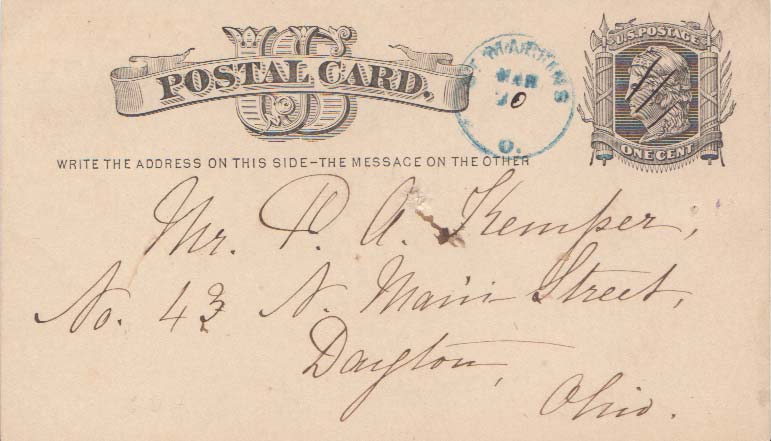 US
POSTAL CARD.
U.S. POSTAGE
ONE CENT
MAR
O.
WRITE THE ADDRESS ON THIS SIDE-THE MESSAGE ON THE OTHER
Mr. P. A. Kemper,
No. 43 N. Main Street,
Dayton,
Ohio.